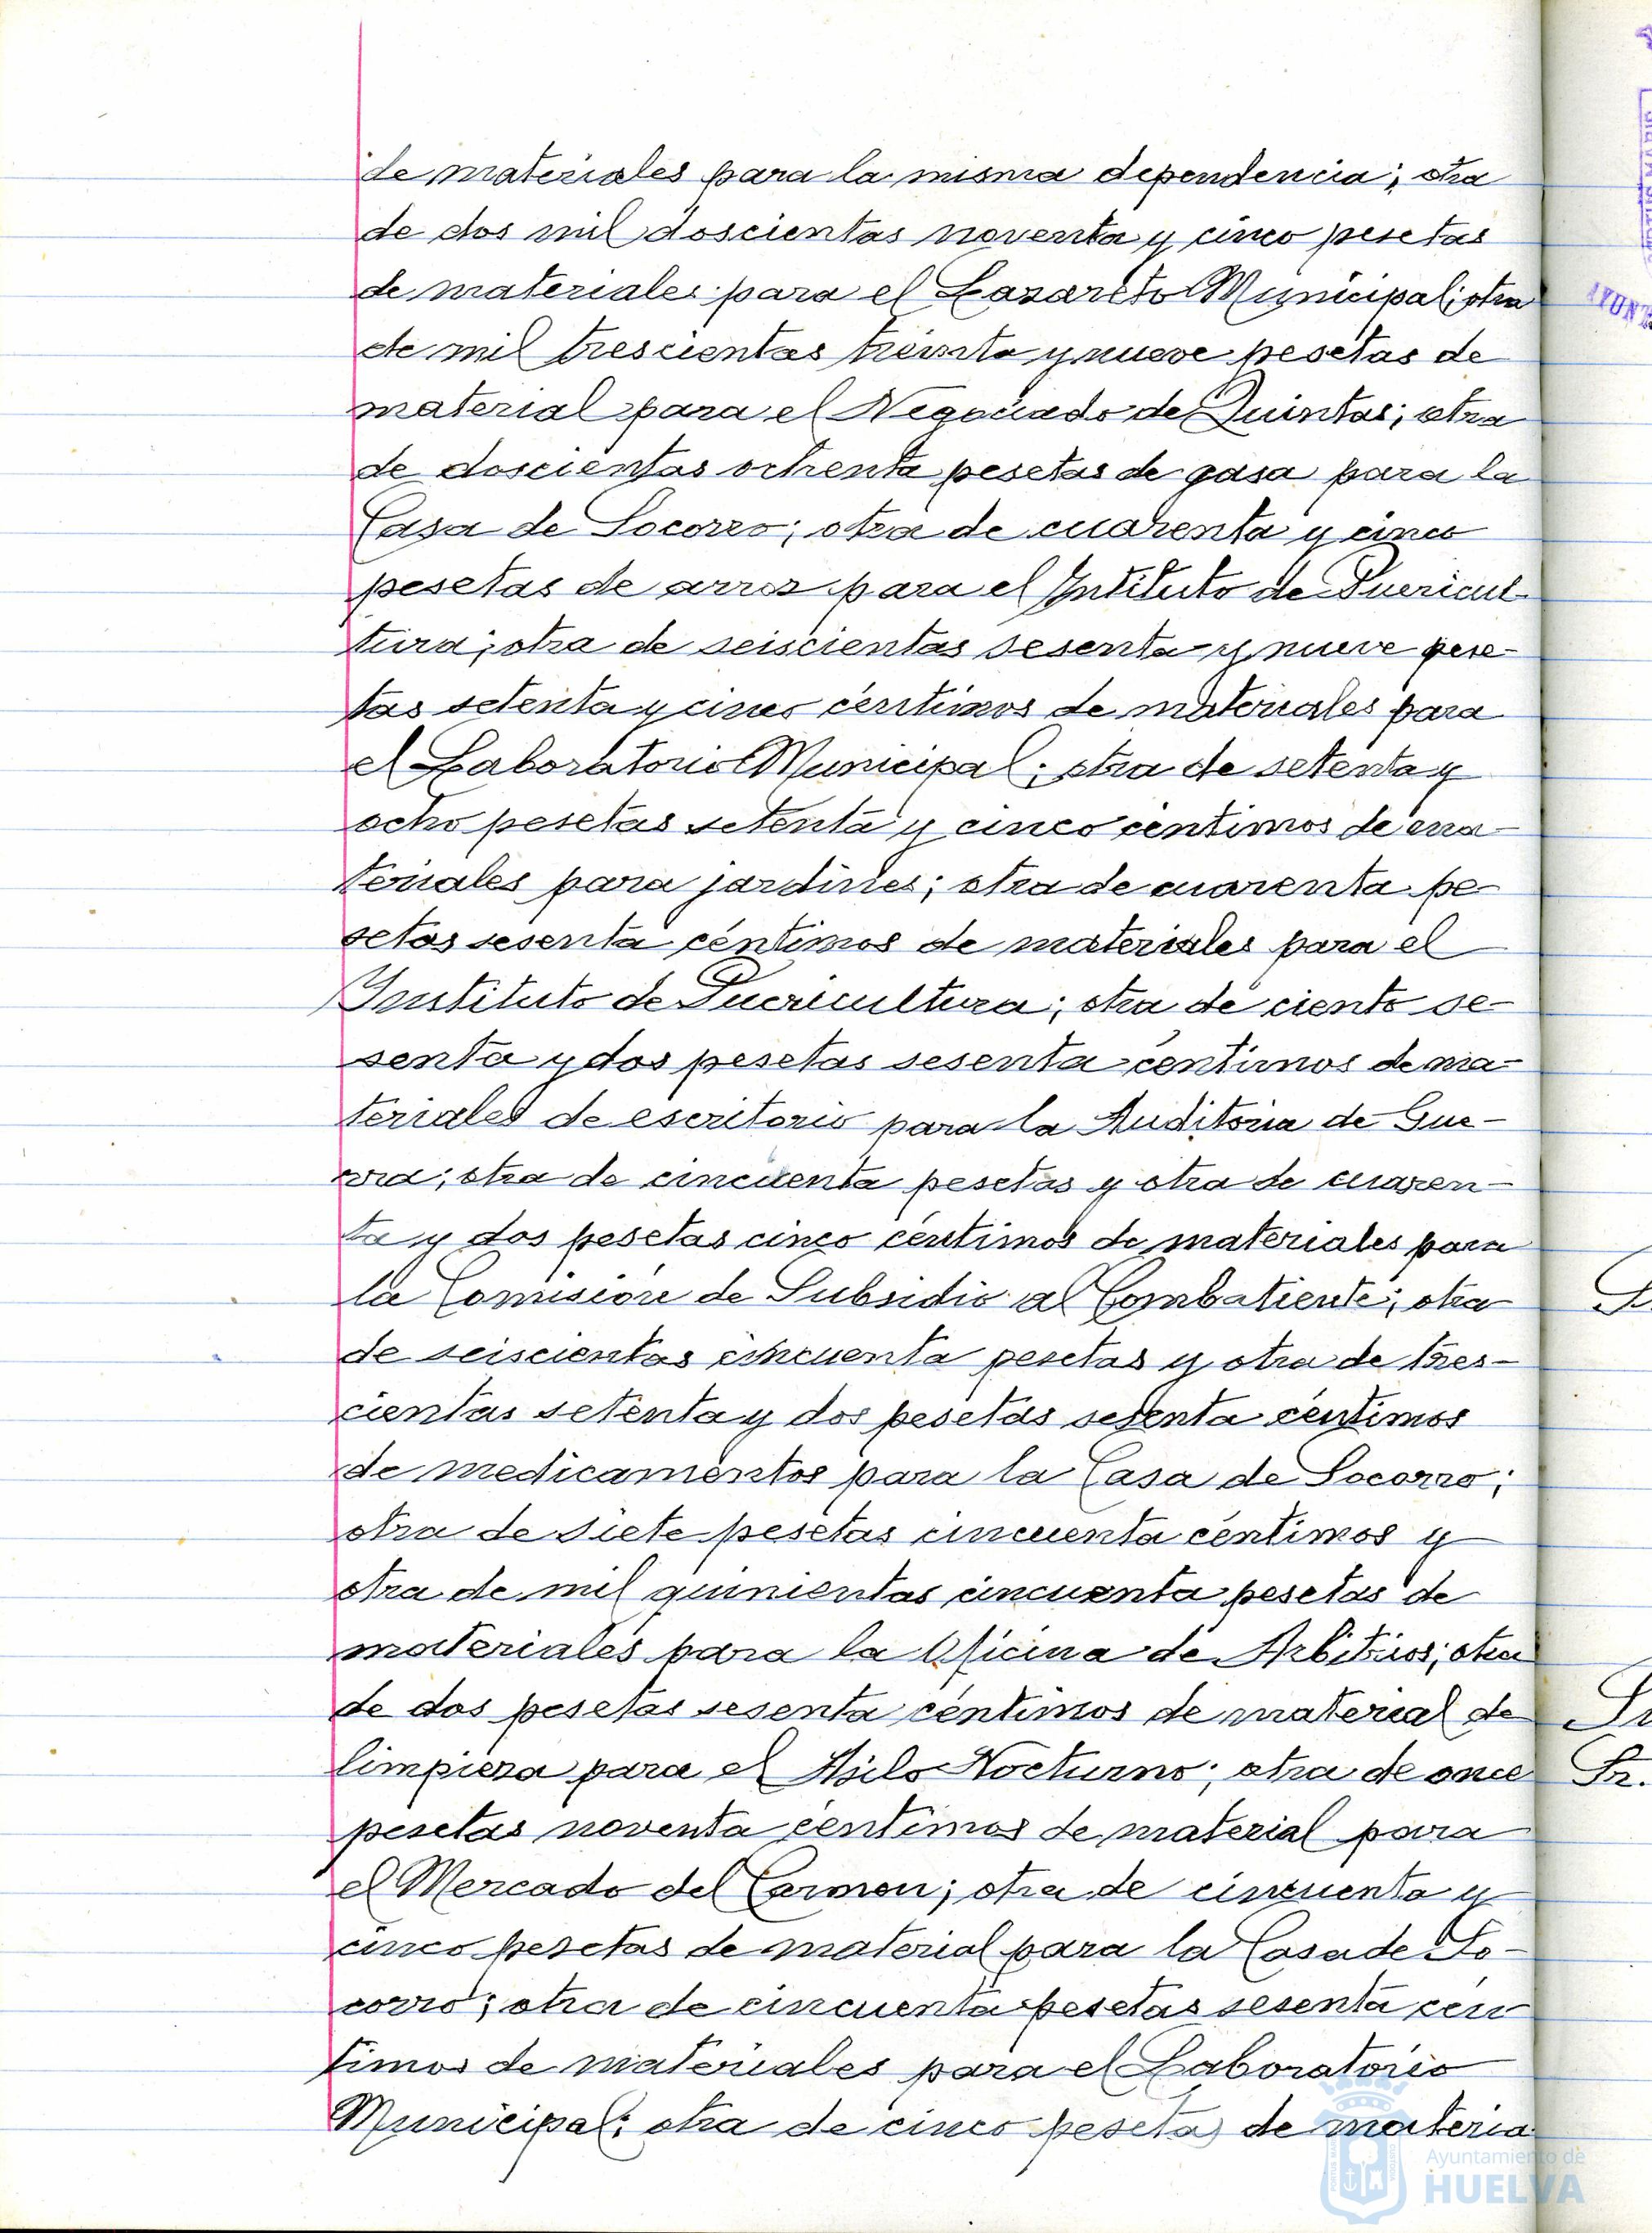 de materiales para la misma dependencia; otra
de dos mil doscientas noventa y cinco pesetas
de materiales para el Lazareto Municipal; otra
de mil trescientas treinta y nueve pesetas de
material para el Negociado de Quintas; otra
de doscientas ochenta pesetas de gasa para la
Casa de Socorro; otra de cuarenta y cinco
pesetas de arroz para el Intituto de Puericul-
tura; otra de seiscientas sesenta y nueve pese-
tas setenta y cinco céntimos de materiales para
el Laboratorio Municipal; otra de setenta y
ocho pesetas setenta y cinco céntimos de ma-
teriales para jardines; otra de cuarenta pe-
setas sesenta céntimos de materiales para el
Instituto de Puericultura; otra de ciento se-
senta y dos pesetas sesenta céntimos de ma-
teriales de escritorio para la Auditoria de Gue-
rra; otra de cincuenta pesetas y otra de cuaren-
ta y dos pesetas cinco céntimos de materiales para
la Comisión de Subsidio al Combatiente; otra
de seiscientas cincuenta pesetas y otra de tres-
cientas setenta y dos pesetas céntimos
de medicamentos para la Casa de Socorro;
otra de siete pesetas cincuenta céntimos y
otra de mil quinientas cincuenta pesetas de
materiales para la Oficina de Arbitrios; otra
de dos pesetas sesenta céntimos de material de
limpieza para el Asilo Nocturno; otra de once
pesetas noventa céntimos de material para
el Mercado del Carmen; otra de cincuenta y
cinco pesetas de material para la Casa de So-
corro; otra de cincuenta pesetas sesenta cén
timos de materiales para el Laboratorio
Municipal; otra de cinco pesetas de materia
AYUNT
Ayuntamiento de
HUELVA